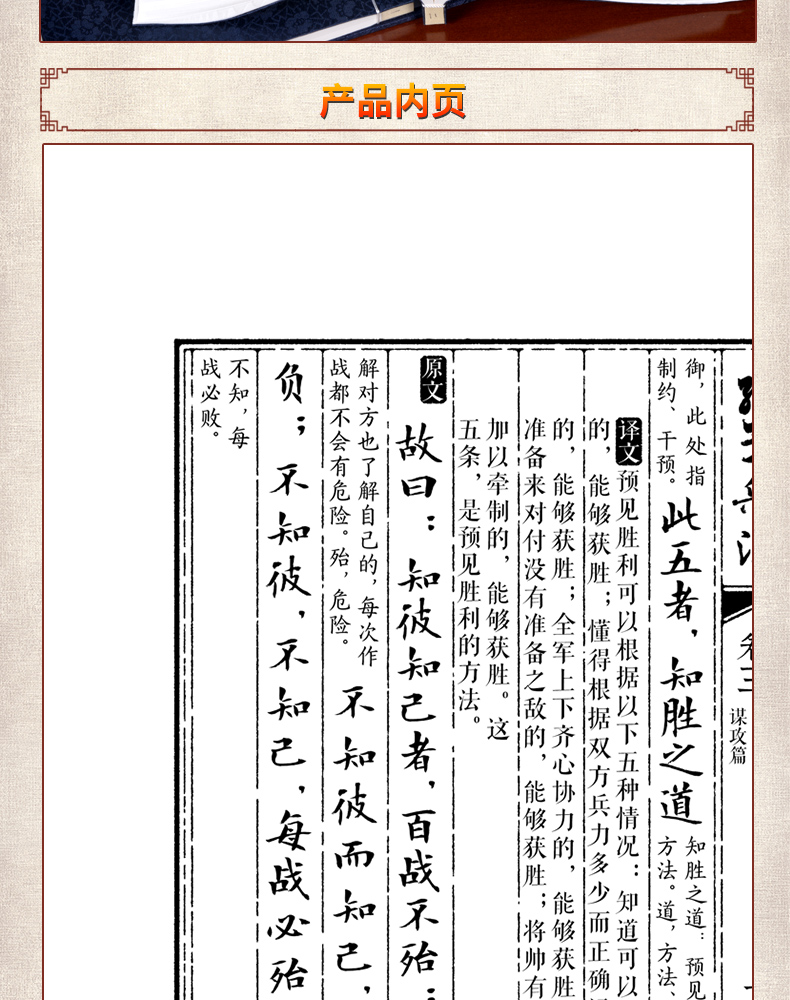 产品内页
孙子兵法
卷三
谋攻篇
御，此处指
制约、干预。
此五者，知胜之道
知胜之道：预见
方法。道，方法、
译文
预见胜利可以根据以下五种情况：知道可以
的，能够获胜；懂得根据双方兵力多少而正确
的，能够获胜；全军上下齐心协力的，能够获胜
准备来对付没有准备之敌的，能够获胜；将帅有
加以牵制的，能够获胜。这
五条，是预见胜利的方法。
原文
故曰：知彼知己者，百战不殆；
解对方也了解自己的，每次作
战都不会有危险。殆，危险。
不知彼而知己，
负；不知彼，不知己，每战必殆
不知，每
战必败。